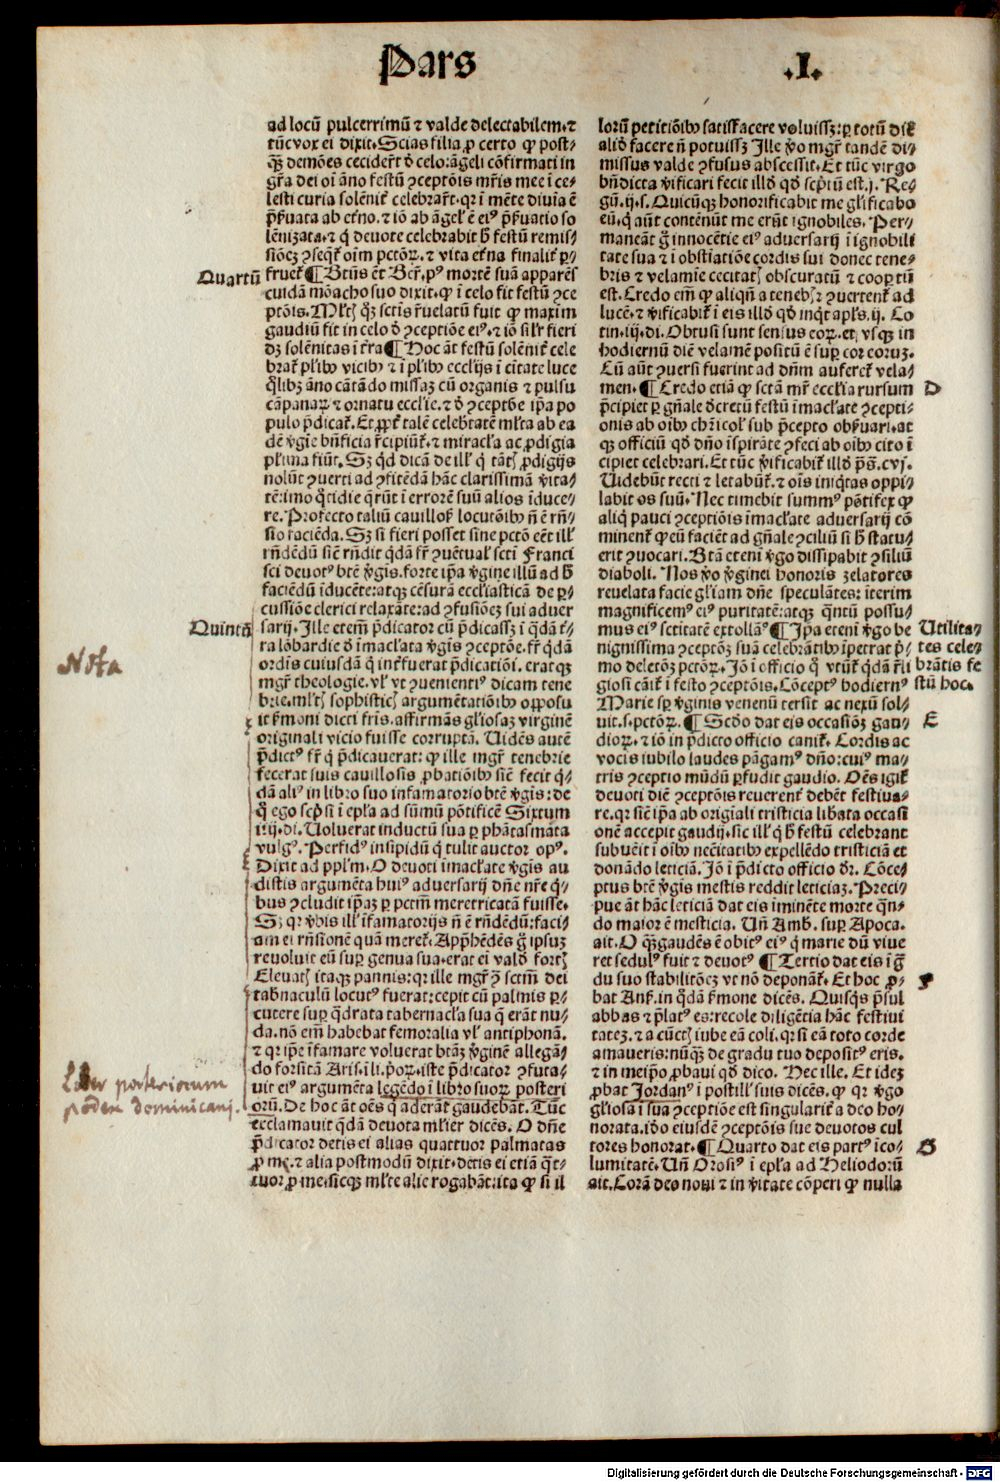 Pars
.I.
ad locū pulcerrimū ⁊ valde delectabilem.⁊
tūc vox ei dixit. Scias filia ꝓ certo ꝙ post⸗
ꝗ̄ꝫ demōes cecider̄t đ celo: āgeli cōfirmati in
gr̄a dei oī āno festū ꝯceptōis mr̄is mee ī ce⸗
lesti curia solēnit̄ celebrar̄t. qꝛ ī mēte diuīa ē
p̄ẜuata ab et̄no. ⁊ iō ab āgeĺ ē eiꝰ p̄ẜuatio so
lēnizata. ⁊ q̇ deuote celebrabit ħ festū remis⸗
siōeꝫ ꝯseqt̄ oīm pctōꝝ. ⁊ vita et̄na finalit̄ ꝑ⸗
Quartū
fruet̄ ¶ Btūs ēt Ber̄. pꝰ mortē suā apparēs
cuidā mōacho suo dixit. ꝙ ī celo fit festū ꝯce
ptōis. Mĺtꝭ q̄ꝫ sctīs r̄uelatū fuit ꝙ maxim̄
gaudiū fit in celo đ ꝯceptiōe eiꝰ. ⁊ iō siĺr fieri
dꝫ solēnitas ī t̄ra ¶ Hoc āt festū solēnit̄ cele
brat̄ pĺibꝰ vicibꝰ ⁊ ī pĺibꝰ eccĺijs ī citate luce
q̇libꝫ āno cātādo missaꝫ cū organis ⁊ pulsu
cāpanaꝝ ⁊ ornatu eccĺie. ⁊ đ ꝯceptōe ip̄a po
pulo p̄dicat̄. Et ꝓpt̄ talē celeb̄tatē mĺta ab ea
dē v̇gīe bn̄ficia r̄cipiūt̄. ⁊ miracĺa ac ꝓdigia
pĺima fiūt. Sꝫ qd̄ dicā de iĺĺ q̇ tātꝭ ꝓdigijs
nolūt ꝯuerti ad ꝯfitēdā hāc clarissimā v̇ita⸗
tē: imo q̄tidie q̄rūt ī errorē suū alios īduce⸗
re. Profecto taliū cauilloſꝭ locutōibꝰ n̄ ē rn̄⸗
sio faciēda. Sꝫ si fieri posset sine pctō eēt iĺĺ
rn̄dēdū siē rn̄dit q̇dā fr̄ ꝯuētuaĺ sctī Franci
sci deuotꝰ btē v̇gīs. forte ip̄a v̇gine illū ad ħ
faciēdū īducēte: atqꝫ cēsurā eccĺiasticā de ꝑ⸗
cussiōe clerici relaxāte: ad ꝯfusiōeꝫ sui aduer
Quintū
sarij. Ille etem̄ p̄dicator cū p̄dicassꝫ ī q̇dā t̄⸗
ra lōbardie đ īmacĺata v̇gīs ꝯceptōe. fr̄ q̇dā
Nota
ordīs cuiusdā q̇ int̄fuerat p̄dicatiōi. erat qꝫ
mgr̄ theologie. vĺ vt ꝯuenientiꝰ dicam tene
brie. mĺtꝭ sophisticꝭ argumētatiōibꝰ oꝓposu
it ẜmoni dicti fr̄is. affirmās gĺiosaꝫ virginē
originali vicio fuisse corruptā. Uidēs autē
p̄dictꝰ fr̄ q̇ p̄dicauerat: ꝙ ille mgr̄ tenebrie
fecerat suis cauillosis ꝓbatiōibꝰ siē fecit q̇⸗
dā aliꝰ in libro suo infamatorio btē v̇gīs: de
q̊ ego scp̄si ī epĺa ad sūmū pōtificē Sixtum
iiij. di. Uoluerat inductū sua ꝑ phātasmata
vulgꝰ. Perfidꝰ insipidū q̇ tulit auctor opꝰ.
Dixit ad ppĺm. O deuoti īmacĺate v̇gīs au
distis argumēta huiꝰ aduersarij dn̄e nr̄e q̇⸗
bus ꝯcludit ip̄aꝫ ꝑ pctm̄ meretricatā fuisse.
Sꝫ qꝛ v̇bis iĺĺ īfamatorijs n̄ ē rn̄dēdū: faci⸗
am ei rn̄sionē quā meret̄. App̄hēdēs g̊ ipsuꝫ
reuoluit eū suꝑ genua sua. erat ei valđ fortꝭ
Eleuatꝭ itaqꝫ pannis: qꝛ ille mgr̄ ꝯ sctm̄ dei
tab̄naculū locutꝰ fuerat: cepit cū palmis ꝑ⸗
cutere suꝑ q̇drata tabernacĺa sua q̄ erāt nu⸗
da. nō em̄ habebat femoralia vĺ antiphonā.
⁊ qꝛ ip̄e īfamare voluerat btāꝫ v̇ginē allegā⸗
do forsitā Aris. ī li. p̄oꝝ. iste p̄dicator ꝯfuta⸗
Liber posteriorum
uit eiꝰ argumēta legēdo ī libro suoꝝ posteri
podex dominicani.
orū. De hoc āt oēs q̇ aderāt gaudebāt. Tūc
exclamauit q̇dā deuota mĺier dicēs. O dn̄e
p̄dicator detis ei alias quattuor palmatas
ꝓ me. ⁊ alia postmodū dixit. detis ei etiā q̇t⸗
tuor ꝓ me. sicqꝫ mĺte alie rogabāt: ita ꝙ si il
loꝝ petitiōibꝰ satisfacere voluissꝫ: ꝑ totū diē
aliđ facere n̄ potuissꝫ Ille v̊o mgr̄ tandē di⸗
missus valde ꝯfusus abscessit. Et tūc virgo
bn̄dicta v̇ificari fecit illđ qđ scp̄tū est. j. Re⸗
gū. ij. s. Quicūqꝫ honorificabit me gĺificabo
eū. q̇ aūt contēnūt me erūt ignobiles. Per⸗
maneāt g̊ innocētie eiꝰ aduersarij ī ignobili
tate sua ⁊ ī obstiatiōe cordis sui donec tene⸗
bris ⁊ velamīe cecitatꝭ obscuratū ⁊ cooptū
est. Credo em̄ ꝙ aliqn̄ a teneb̄ꝭ ꝯuertent̄ ad
lucē. ⁊ v̇ificabit̄ ī eis illđ qđ inq̇t apĺs. ij. Co
rin. iij. di. Obtusi sunt sensus eoꝝ. et vsqꝫ in
hodiernū diē velamē positū ē suꝑ cor eoruꝫ.
Cū aūt ꝯuersi fuerint ad dn̄m auferet̄ vela⸗
D
men. ¶ Credo etiā ꝙ sctā mr̄ eccĺia rursum
p̄cipiet ꝑ gn̄ale đcretū festū īmacĺate ꝯcepti⸗
onis ab oībꝰ chr̄icoĺ sub p̄cepto obẜuari. at
qꝫ officiū qđ dn̄o īspirāte ꝯfeci ab oībꝰ cito ī
cipiet celebrari. Et tūc v̇ificabit̄ illđ p̄s̄. cvj.
Uidebūt recti ⁊ letabūt̄. ⁊ oīs iniq̇tas oppi⸗
labit os suū. Nec timebit summꝰ pōtifex ꝙ
aliq̇ pauci ꝯceptiōis īmacĺate aduersarij cō
minent̄ ꝙ eū faciēt ad gn̄ale ꝯciliū si ħ statu⸗
erit ꝯuocari. Btā eteni v̇go dissipabit ꝯsiliū
diaboli. Nos v̊o v̇ginei honoris zelatores
reuelata facie gĺiam dn̄e speculātes: īterim
magnificemꝰ eiꝰ puritatē: atqꝫ q̄ntū possu⸗
Utilita⸗
tes cele⸗
brātis fe
stū hoc.
mus eiꝰ sctitatē extollāꝰ ¶ Ip̄a eteni v̇go be
nignissima ꝯceptōꝫ suā celebrātibꝰ īpetrat p̄⸗
mo deletōꝫ pctōꝝ. Iō ī officio q̊ vtūt̄ q̇dā r̄li
giosi cāit̄ ī festo ꝯceptōis. Cōceptꝰ hodiernꝰ
Marie suꝑ v̇ginis venenū tersit ac nexū sol⸗
E
uit. s. pctōꝝ. ¶ Scđo dat eis occasiōꝫ gau⸗
dioꝝ. ⁊ iō in p̄dicto officio canit̄. Cordis ac
vocis iubilo laudes pāgamꝰ dn̄o: cuiꝰ ma⸗
tris ꝯceptio mūdū ꝑfudit gaudio. Oēs igit̄
deuoti diē ꝯceptōis reuerent̄ debēt festiua⸗
re. qꝛ siē ip̄a ab originali tristicia libata occasi
onē accepit gaudij. sic iĺĺ q̇ ħ festū celebrant
subuēit ī oībꝰ nec̄itatibꝰ expellēdo tristiciā et
donādo leticiā. Iō ī p̄dicto officio đr. Cōce⸗
ptus btē v̇gīs mestis reddit leticiaꝫ. Preci⸗
pue āt hāc leticiā dat eis īminēte morte q̄n⸗
do maior ē mesticia. Un̄ Amb. suꝑ Apoca.
ait. O q̄ꝫ gaudēs ē obitꝰ eiꝰ q̇ marie dū viue
ret sedulꝰ fuit ⁊ deuotꝰ ¶ Tertio dat eis ī g̊
F
du suo stabilitōeꝫ vt nō deponāt̄. Et hoc ꝓ⸗
bat Anſ. in q̇dā ẜmone dicēs. Quisq̇s p̄sul
abbas ⁊ p̄latꝰ es: recole diligētia hāc festiui
tateꝫ. ⁊ a cūctꝭ iube eā coli. qꝛ si eā toto corde
amaueris: nūq̄ꝫ de gradu tuo depositꝰ eris.
⁊ in meip̄o ꝓbaui qđ dico. Hec ille. Et ideꝫ
ꝓbat Jordanꝰ ī postilĺ suis dicēs. ꝙ qꝛ v̇go
gĺiosa ī sua ꝯceptiōe est singularit̄ a deo ho⸗
norata. iđo eiusdē ꝯceptōis sue deuotos cul
G
tores honorat. ¶ Quarto dat eis partꝰ īco⸗
lumitatē. Un̄ Orosiꝰ ī epĺa ad Heliodorū
ait. Corā deo noui ⁊ in v̇itate cōperi ꝙ nulla
Digitalisierung gefördert durch die Deutsche Forschungsgemeinschaft - DFG